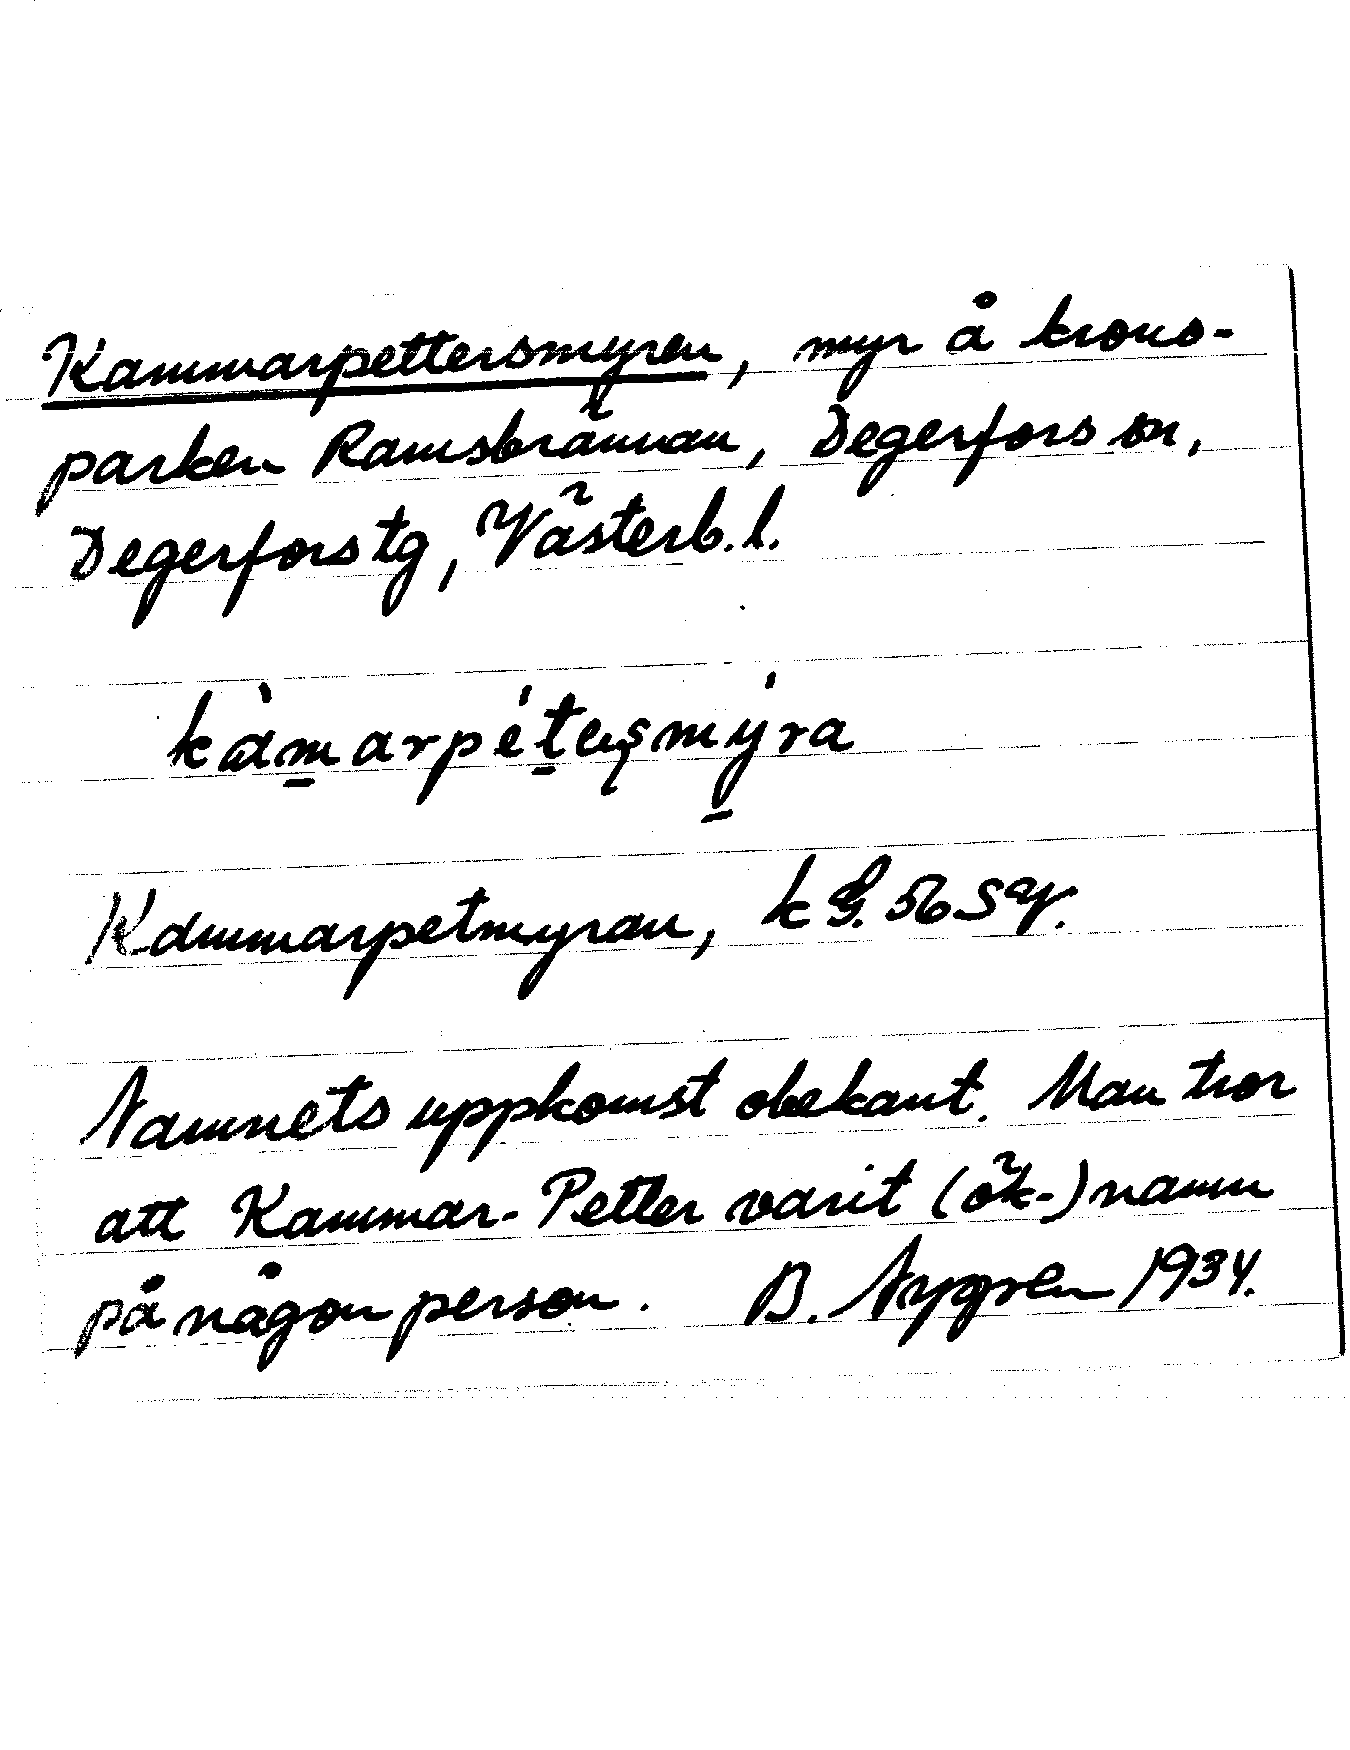 Kammarpettersmyren, myr å krono-
parken Ramsbrännan, Degerfors sn,
Degerfors tg, Västerb. l.
kàmarpétesmýra
Kammarpetmyran, k G. 56 SV.
Namnets uppkomst obekant. Man tror
att Kammar-Petter varit (ök-)namn
på någon person. B. Nygren 1934.